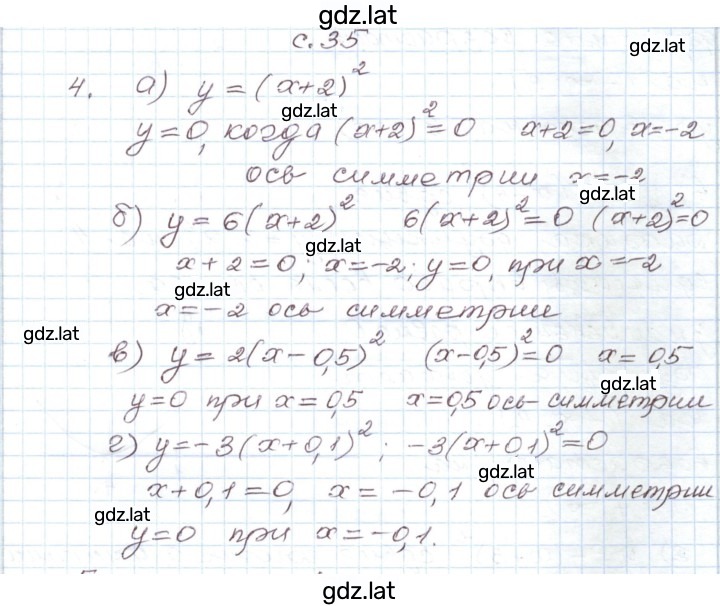 gdz.lat
с. 35
gdz.lat
4. а) y = (x+2)²
gdz.lat
y=0, когда (x+2)²=0 x+2=0, x=-2
ось симметрии x=-2
gdz.lat
б) y = 6(x+2)² 6(x+2)²=0 (x+2)²=0
gdz.lat
x+2=0; x=-2; y=0, при x=-2
gdz.lat
x=-2 ось симметрии
gdz.lat
в) y = 2(x-0,5)² (x-0,5)²=0 x=0,5
gdz.lat
y=0 при x=0,5 x=0,5 ось симметрии
г) y=-3(x+0,1)²; -3(x+0,1)²=0
gdz.lat
x+0,1=0, x=-0,1 ось симметрии
gdz.lat
y=0 при x=-0,1.
gdz.lat